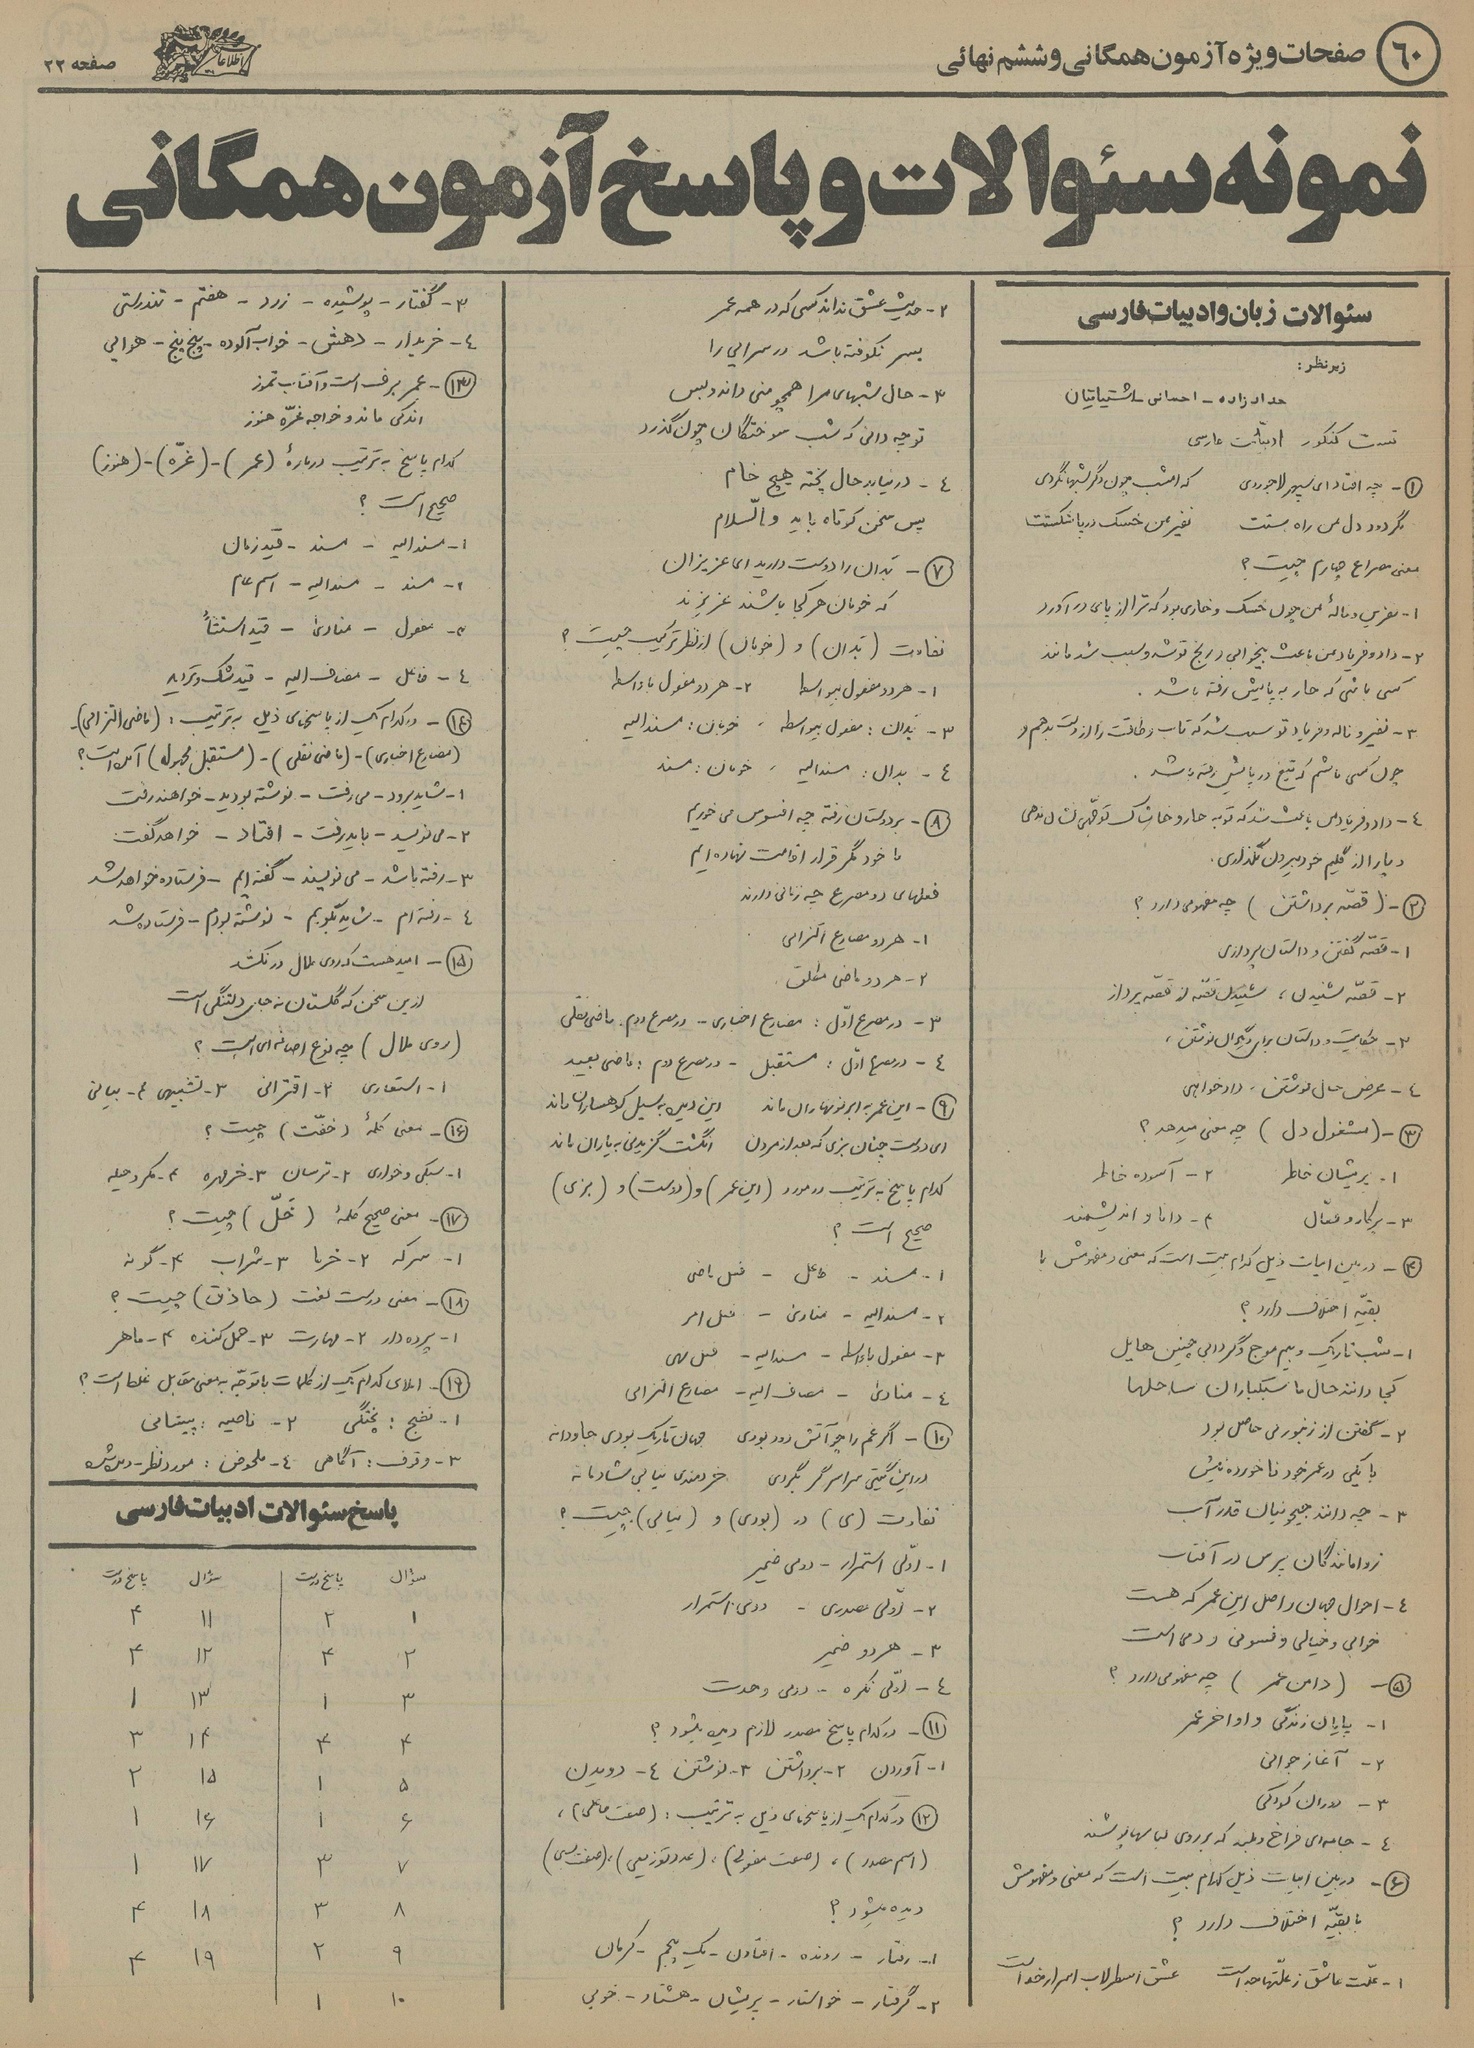 ۶۰
صفحات ویژه آزمون همگانی و ششم نهائی
اطلاعات
صفحه ۲۲
نمونه سئوالات و پاسخ آزمون همگانی
سئوالات زبان و ادبیات فارسی
زیر نظر:
حداد زاده - احسانی - اشتیاقیان
تست کنکور ادبیّات فارسی
۱- چه افتاد ای سپهر لاجوردی که امشب چون دگر شبها نگردی
مگر دود دل من راه بستت نفیر من خسک در پا شکستت
معنی مصراع چهارم چیست؟
۱- نفرین و نالهٔ من چون خسک و خاری بود که ترا از پای در آورد
۲- داد و فریاد من باعث بیخوابی و رنج تو شد و سبب شد مانند
کسی باشی که خار به پایش رفته باشد.
۳- نفیر و ناله و فریاد تو سبب شد که تاب و طاقت را از دست بدهم و
چون کسی باشم که تیغ در پایش رفته باشد.
۴- داد و فریاد من باعث شد که تو به خار و خاشاک توجّهی نشان ندهی
و پا را از گلیم خود بیرون بگذاری.
۲- (قصّه برداشتن) چه مفهومی دارد؟
۱- قصّه گفتن و داستان پردازی
۲- قصّه شنیدن، شنیدن قصّه از قصّه پرداز
۳- حکایت و داستان برای دیگران نوشتن،
۴- عرض حال نوشتن، دادخواهی
۳- (مشغول دل) چه معنی میدهد؟
۱- پریشان خاطر ۲- آسوده خاطر
۳- پرکار و فعّال ۴- دانا و اندیشمند
۴- در بین ابیات ذیل کدام بیت است که معنی و مفهومش با
بقیّه اختلاف دارد؟
۱- شب تاریک و بیم موج و گردابی چنین هایل
کجا دانند حال ما سبکباران ساحلها
۲- گفتن از زنبور بی حاصل بود
با یکی در عمر خود ناخورده نیش
۳- چه دانند جیحونیان قدر آب
ز واماندگان پرس در آفتاب
۴- احوال جهان و اصل این عمر که هست
خوابی و خیالی و فسونی و دمی است
۵- (دامن عمر) چه مفهومی دارد؟
۱- پایان زندگی و اواخر عمر
۲- آغاز جوانی
۳- دوران کودکی
۴- جامه‌ای فراخ و بلند که بر روی لباسها پوشند
۶- در بین ابیات ذیل کدام بیت است که معنی و مفهومش
با بقیّه اختلاف دارد؟
۱- علّت عاشق ز علّتها جداست عشق اسطرلاب اسرار خداست
۲- حدیث عشق نداند کسی که در همه عمر
بسر نکوفته باشد در سرایی را
۳- حال شبهای مرا همچو منی داند و بس
تو چه دانی که شب سوختگان چون گذرد
۴- در نیابد حال پخته هیچ خام
پس سخن کوتاه باید والسّلام
۷- بَدان را دوست دارید ای عزیزان
که خوبان هر کجا باشند عزیزند
تفاوت (بَدان) و (خوبان) از نظر ترکیب چیست؟
۱- هر دو مفعول بیواسطه ۲- هر دو مفعول باواسطه
۳- بَدان: مفعول بیواسطه، خوبان: مسندالیه
۴- بدان: مسندالیه، خوبان: مسند
۸- بر دوستان رفته چه افسوس می خوریم
با خود مگر قرار اقامت نهاده ایم
فعلهای دو مصرع چه زمانی دارند
۱- هر دو مضارع التزامی
۲- هر دو ماضی مطلق.
۳- در مصرع اوّل: مضارع اخباری - در مصرع دوم: ماضی نقلی
۴- در مصرع اوّل: مستقبل - در مصرع دوم: ماضی بعید
۹- این عمر به ابر نو بهاران ماند این دیده به سیل کوهساران ماند
ای دوست چنان بزی که بعد از مردن انگشت گزیدنی به یاران ماند
کدام پاسخ به ترتیب در مورد (این عمر) و (دوست) و (بزی)
صحیح است؟
۱- مسند - فاعل - فعل ماضی
۲- مسندالیه - منادی - فعل امر
۳- مفعول باواسطه - مسندالیه - فعل نهی
۴- منادی - مضاف الیه - مضارع التزامی
۱۰- اگر غم را چو آتش دود بودی جهان تاریک بودی جاودانه
در این گیتی سراسر گر بگردی خردمندی نیابی شادمانه
تفاوت (ی) در (بودی) و (نیابی) چیست؟
۱- اوّلی استمرار - دومی ضمیر
۲- اوّلی مصدری - دومی استمرار
۳- هر دو ضمیر
۴- اوّلی نکره - دومی وحدت
۱۱- در کدام پاسخ مصدر لازم دیده میشود؟
۱- آوردن ۲- برداشتن ۳- نوشتن ۴- دویدن
۱۲- در کدام یک از پاسخهای ذیل به ترتیب: (صفت فاعلی)،
(اسم مصدر)، (صفت مفعولی)، (عدد توزیعی)، (صفت نسبی)
دیده میشود؟
۱- رفتار - رونده - افتادن - یک پنجم - کرمان
۲- گرفتار - خواستار - پریشان - هشتاد - خوبی
۳- گفتار - پوشیده - زرد - هفتم - تندرستی
۴- خریدار - دهش - خواب آلوده - پنج پنج - هوایی
۱۳- عمر برف است و آفتاب تموز
اندکی ماند و خواجه غرّه هنوز
کدام پاسخ به ترتیب دربارهٔ (عمر) - (غرّه) - (هنوز)
صحیح است؟
۱- مسندالیه - مسند - قید زمان
۲- مسند - مسندالیه - اسم عام
۳- مفعول - منادی - قید استثناء
۴- فاعل - مضاف الیه - قید شک و تردید
۱۴- در کدام یک از پاسخهای ذیل به ترتیب: (ماضی التزامی) -
(مضارع اخباری) - (ماضی نقلی) - (مستقبل مجهول) آمده است؟
۱- شاید برود - می رفت - نوشته بودید - خواهند رفت
۲- می نویسد - باید رفت - افتاد - خواهد گفت.
۳- رفته باشد - می نویسند - گفته ایم - فرستاده خواهد شد
۴- رفته ام - شاید بگویم - نوشته بودم - فرستاده شد
۱۵- امید هست که روی ملال در نکشد
ازین سخن که گلستان نه جای دلتنگی است
(روی ملال) چه نوع اضافه‌ای است؟
۱- استعاری ۲- اقترانی ۳- تشبیهی ۴- بیانی
۱۶- معنی کلمهٔ (خفّت) چیست؟
۱- سبکی و خواری ۲- ترسان ۳- خرمهره ۴- مکر و حیله
۱۷- معنی صحیح کلمهٔ (خَلّ) چیست؟
۱- سرکه ۲- خرما ۳- شراب ۴- گونه
۱۸- معنی درست لغت (حاذق) چیست؟
۱- پرده دار ۲- مهارت ۳- حمل کننده ۴- ماهر
۱۹- املای کدام یک از کلمات با توجّه به معنی مقابل غلط است؟
۱- نضج: پختگی ۲- ناصیه: پیشانی
۳- وقوف: آگاهی ۴- ملحوض: مورد نظر - دیده شده
پاسخ سئوالات ادبیات فارسی
سؤال پاسخ درست سؤال پاسخ درست
۱ ۲ ۱۱ ۴
۲ ۴ ۱۲ ۴
۳ ۱ ۱۳ ۱
۴ ۴ ۱۴ ۳
۵ ۱ ۱۵ ۲
۶ ۱ ۱۶ ۱
۷ ۳ ۱۷ ۱
۸ ۳ ۱۸ ۴
۹ ۲ ۱۹ ۴
۱۰ ۱